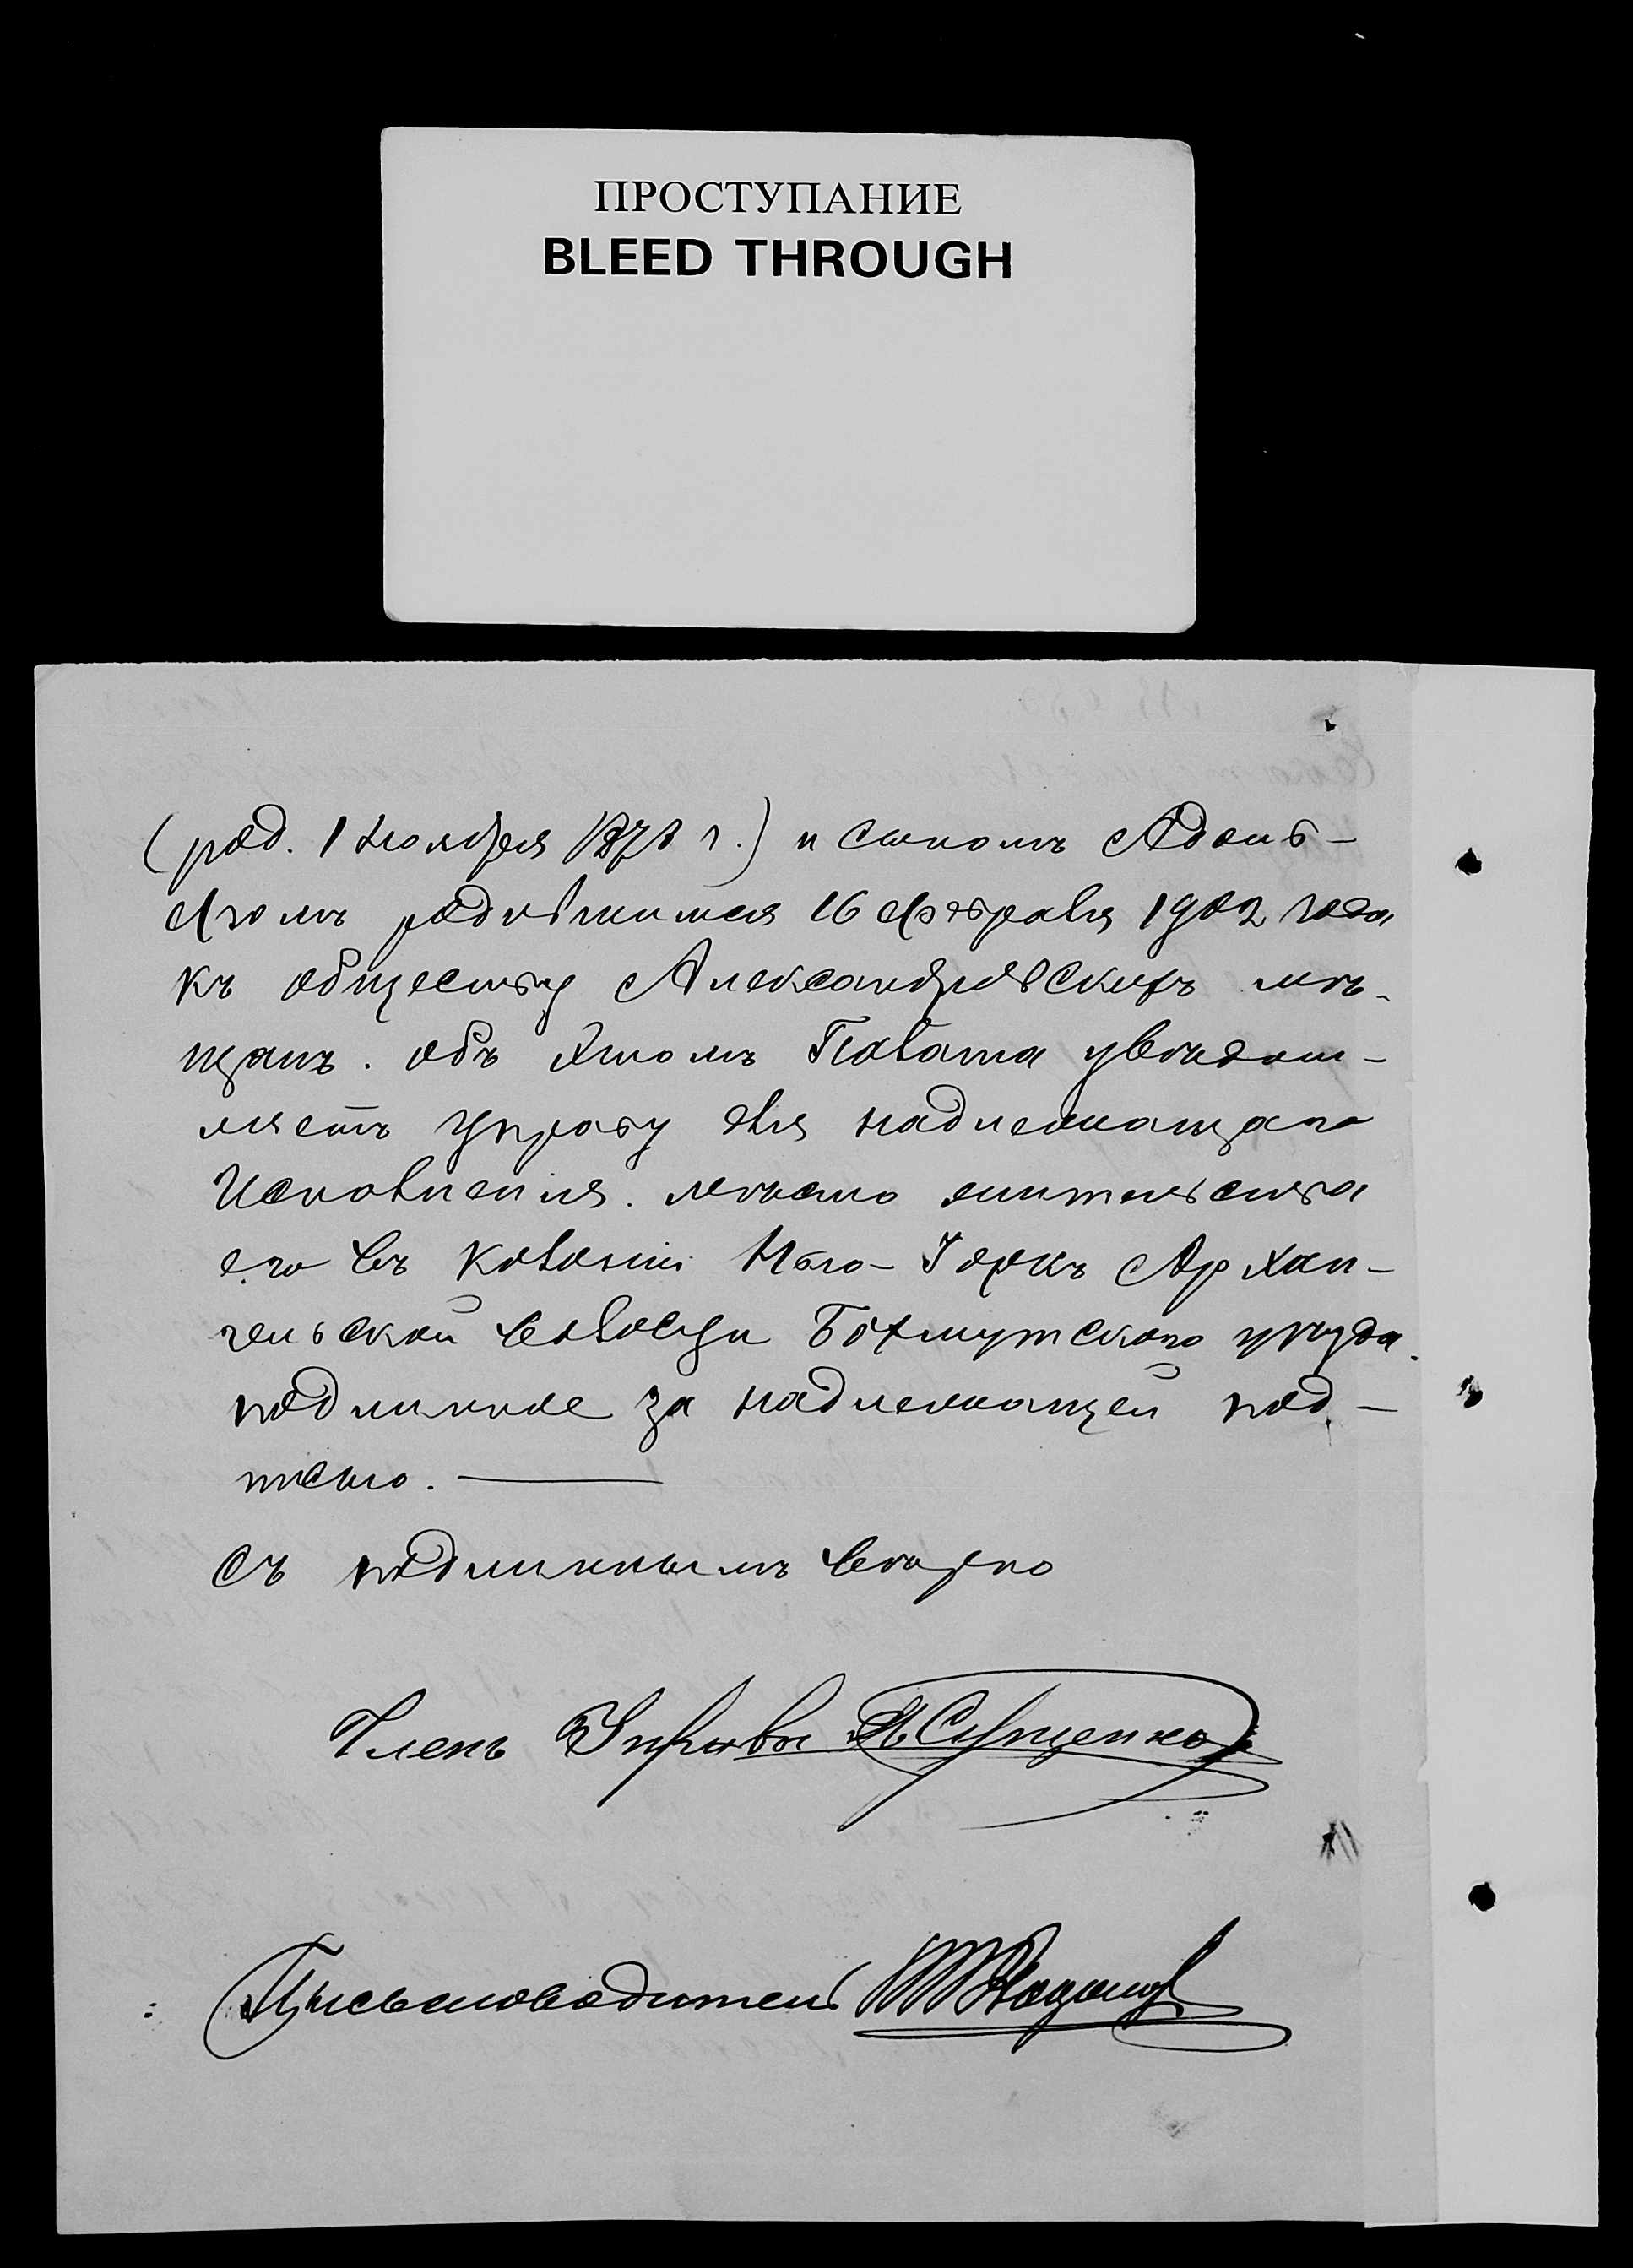 ПРОСТУПАНИЕ
BLEED THROUGH
(род. 1 Ноября 1878 г.) и сыномъ Адоль-
фомъ родившимся 16 Февраля 1902 года
къ обществу Александровскихъ мѣ-
щанъ. объ этомъ Палата увѣдом-
ляетъ Управу для надлежащаго
Исполненія. мѣсто жительства
его въ Колоніи Нью-Іоркъ Архан-
гельской волости Бахмутского уѣзда.
подлинное за надлежащей под-
писью.
съ подлиннымъ вѣрно
Членъ Управы
Письмоводитель